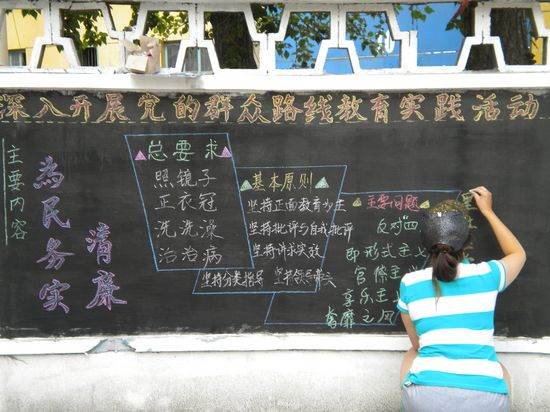 深入开展党的群众路线教育实践活动
主要内容
为民务实
清廉
总要求
照镜子
正衣冠
洗洗澡
治治病
基本原则
坚持正面教育为主
坚持批评与自我批评
坚持讲求实效
坚持分类指导 坚持领导带头
主要问题
反对"四
即形式主义
官僚主
享乐主
奢靡之风